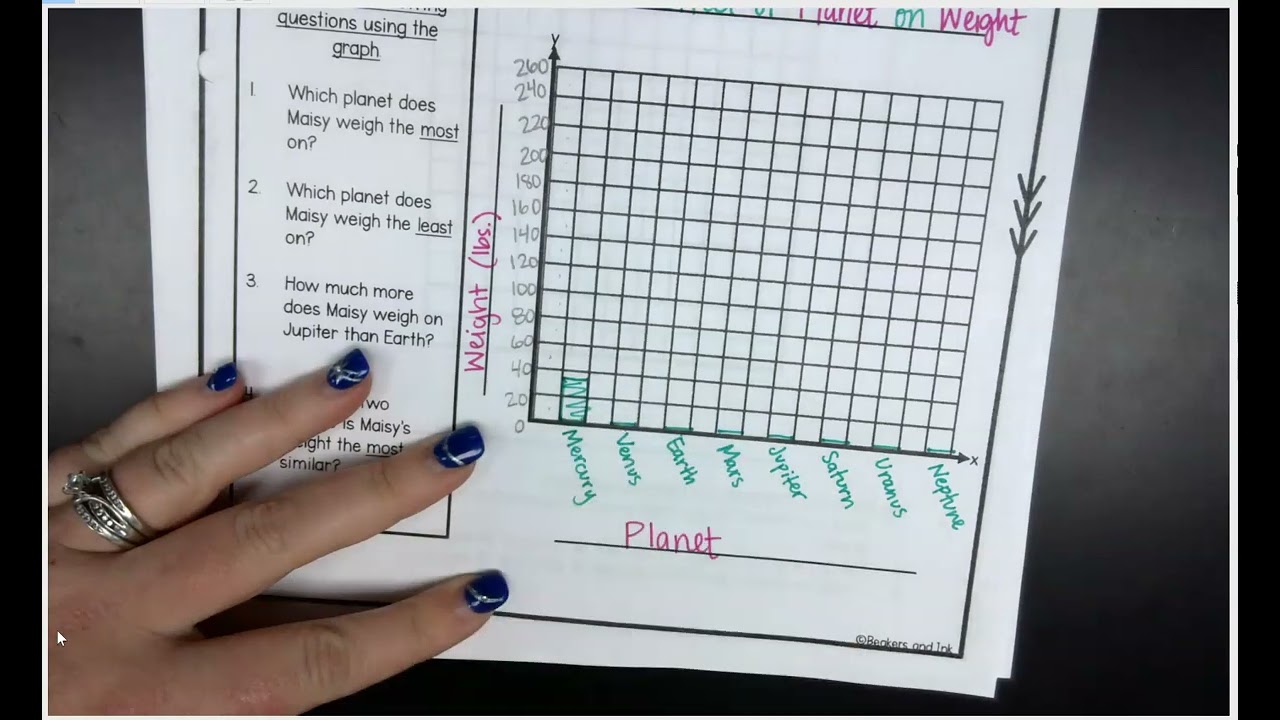 questions using the
graph.
1. Which planet does
Maisy weigh the most
on?
2. Which planet does
Maisy weigh the least
on?
3. How much more
does Maisy weigh on
Jupiter than Earth?
is Maisy's
the most
similar?
Planet on Weight
Y
260
240
220
200
180
160
140
120
100
80
60
40
20
0
Weight (lbs.)
Mercury
Venus
Earth
Mars
Jupiter
Saturn
Uranus
Neptune
X
Planet
©Beakers and Ink